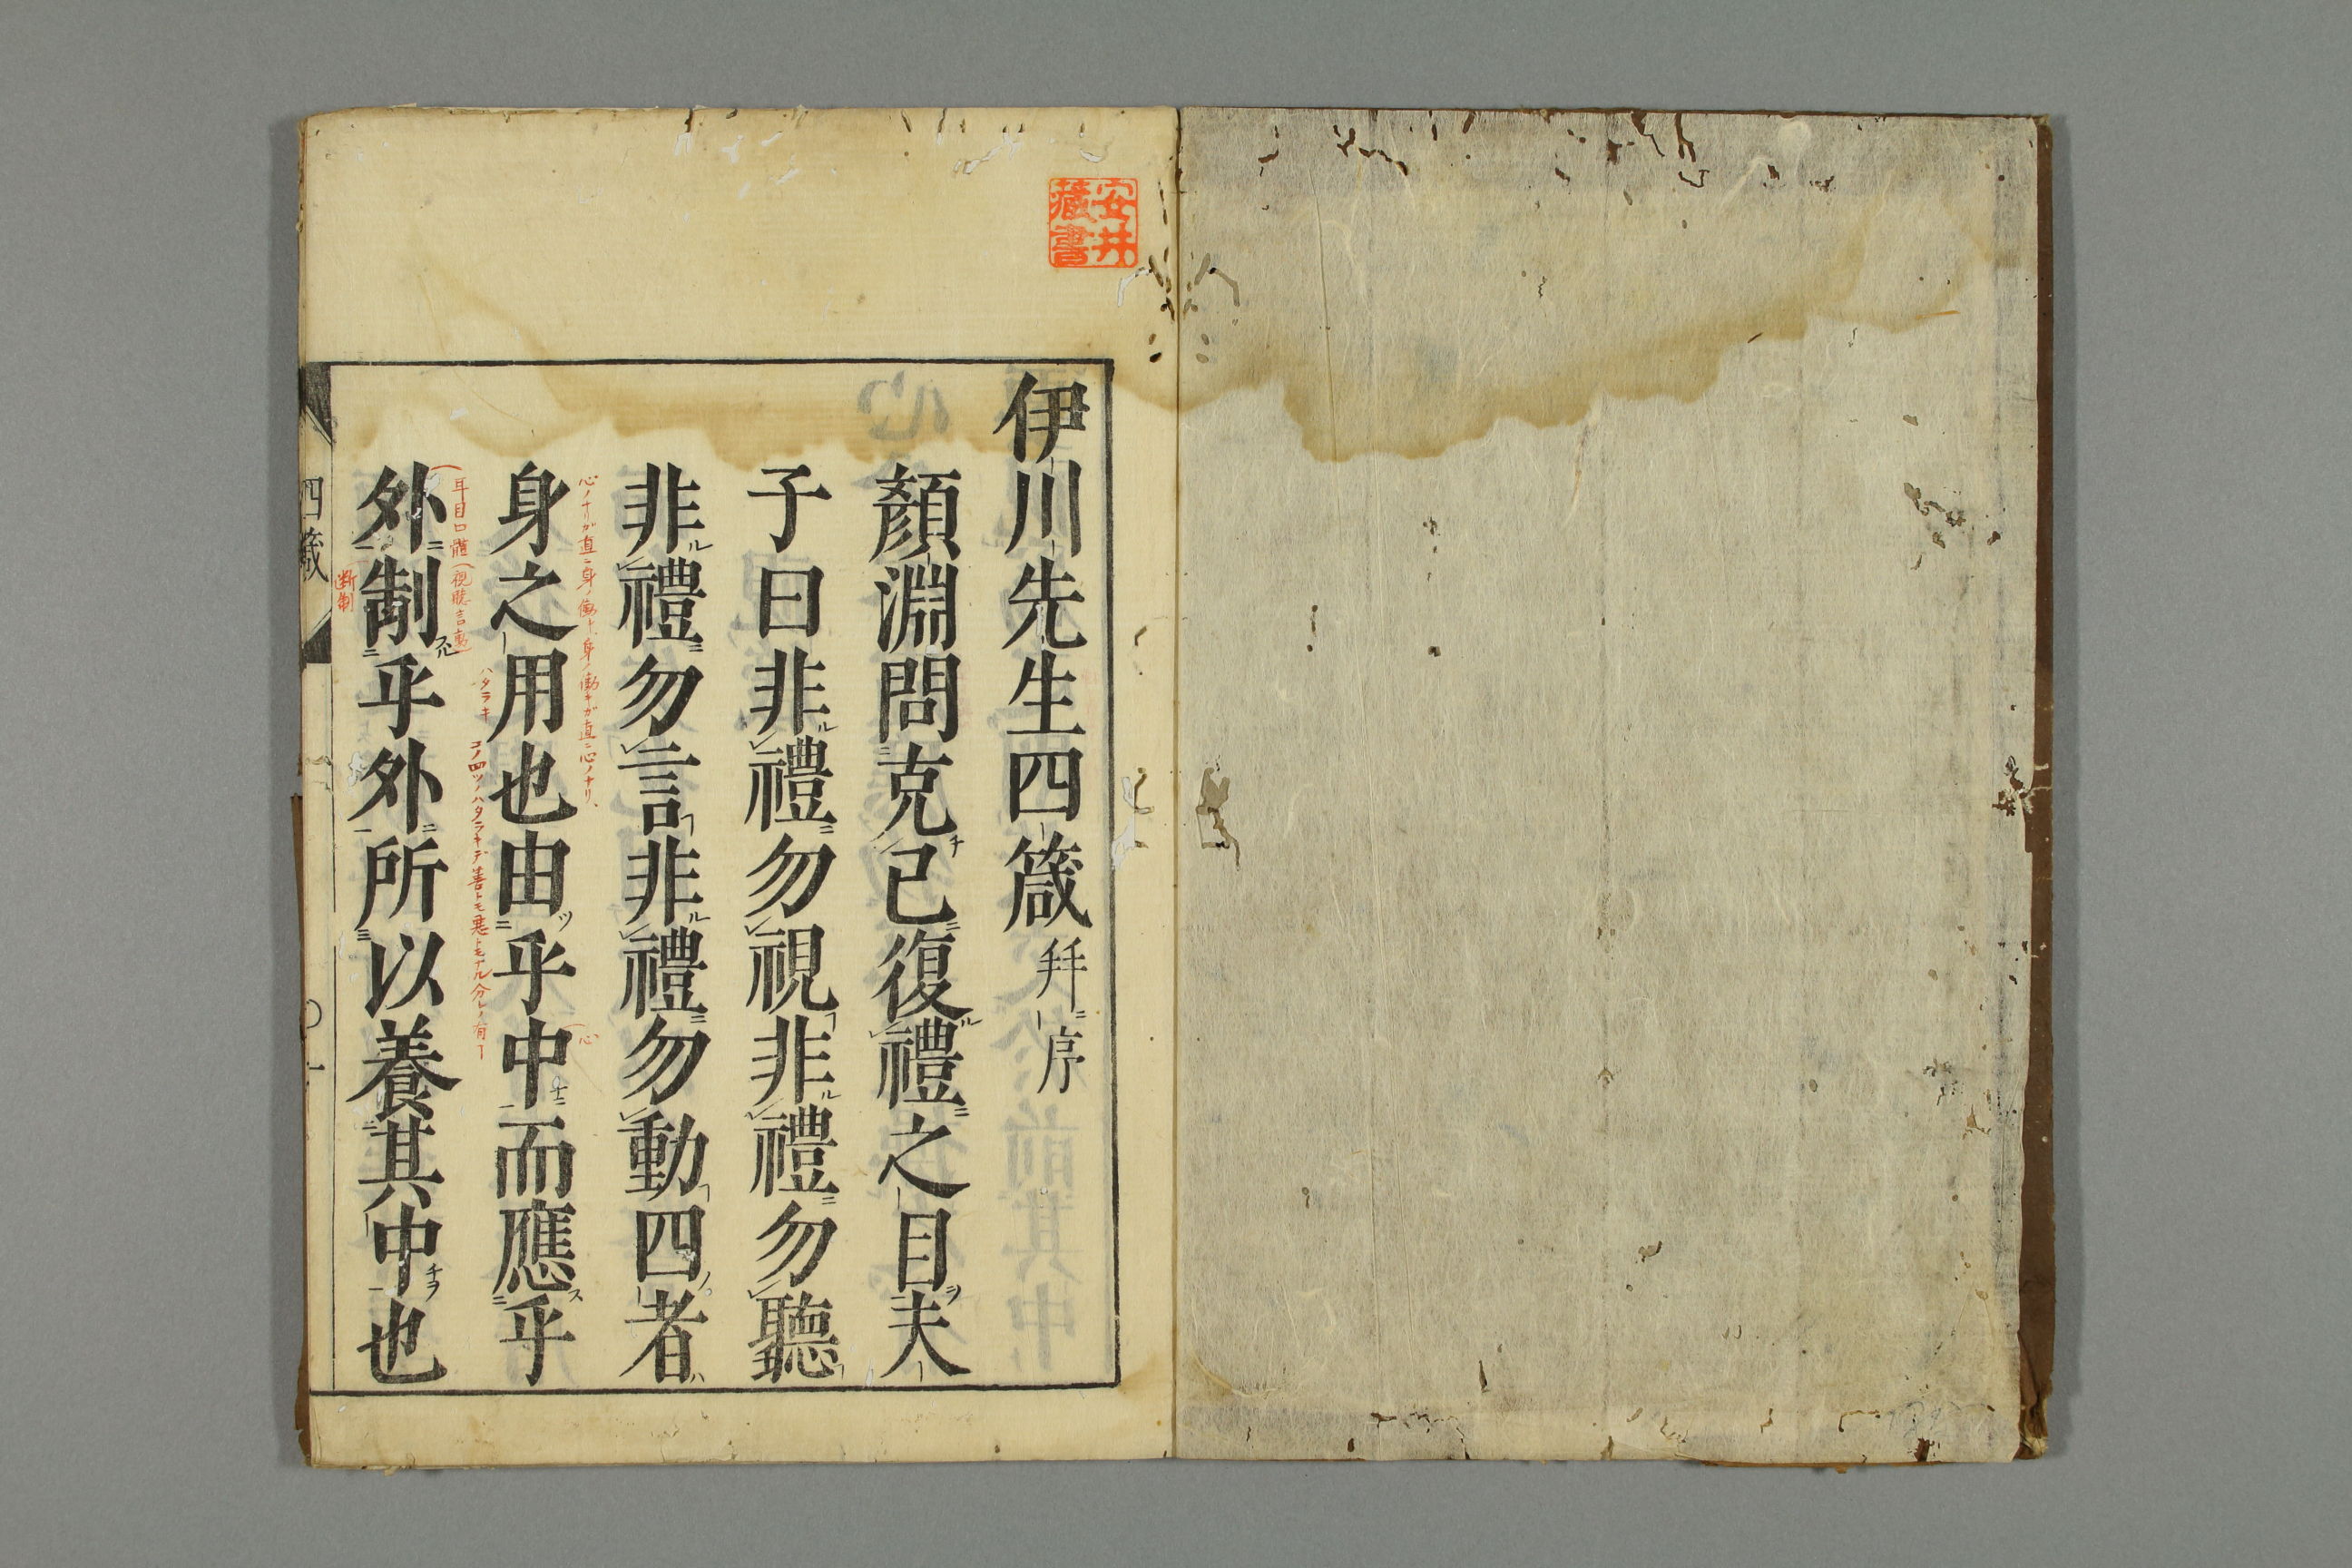 安井
藏書
伊川先生四箴 并序
顏淵問克己復禮之目夫
子曰非禮勿視非禮勿聽
非禮勿言非禮勿動四者
心ノナリガ直ニ身ノ働キ、身ノ働キガ直ニ心ノナリ、
身之用也由乎中而應乎
心
ハタラキ
コノ四ツノハタラキデ善トモ悪トモナル分レノ有
耳目口體(視聴言動)
外制乎外所以養其中也
断制
四箴